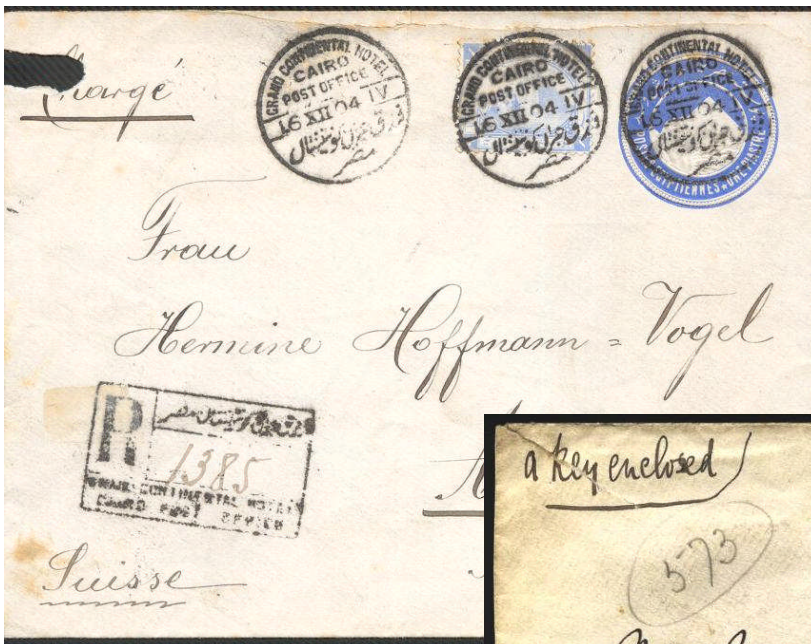 Chargé
GRAND CONTINENTAL HOTEL
CAIRO
POST OFFICE
16 XII 04 IV
مصر
GRAND CONTINENTAL HOTEL
CAIRO
POST OFFICE
16 XII 04 IV
مصر
GRAND CONTINENTAL HOTEL
CAIRO
POST OFFICE
16 XII 04
مصر
POSTES EGYPTIENNES ★ UNE PIASTRE
Frau
Hermine Hoffmann = Vogel
R
مصر
1385
GRAND CONTINENTAL HOTEL
CAIRO POST OFFICE
Suisse
a key enclosed
573